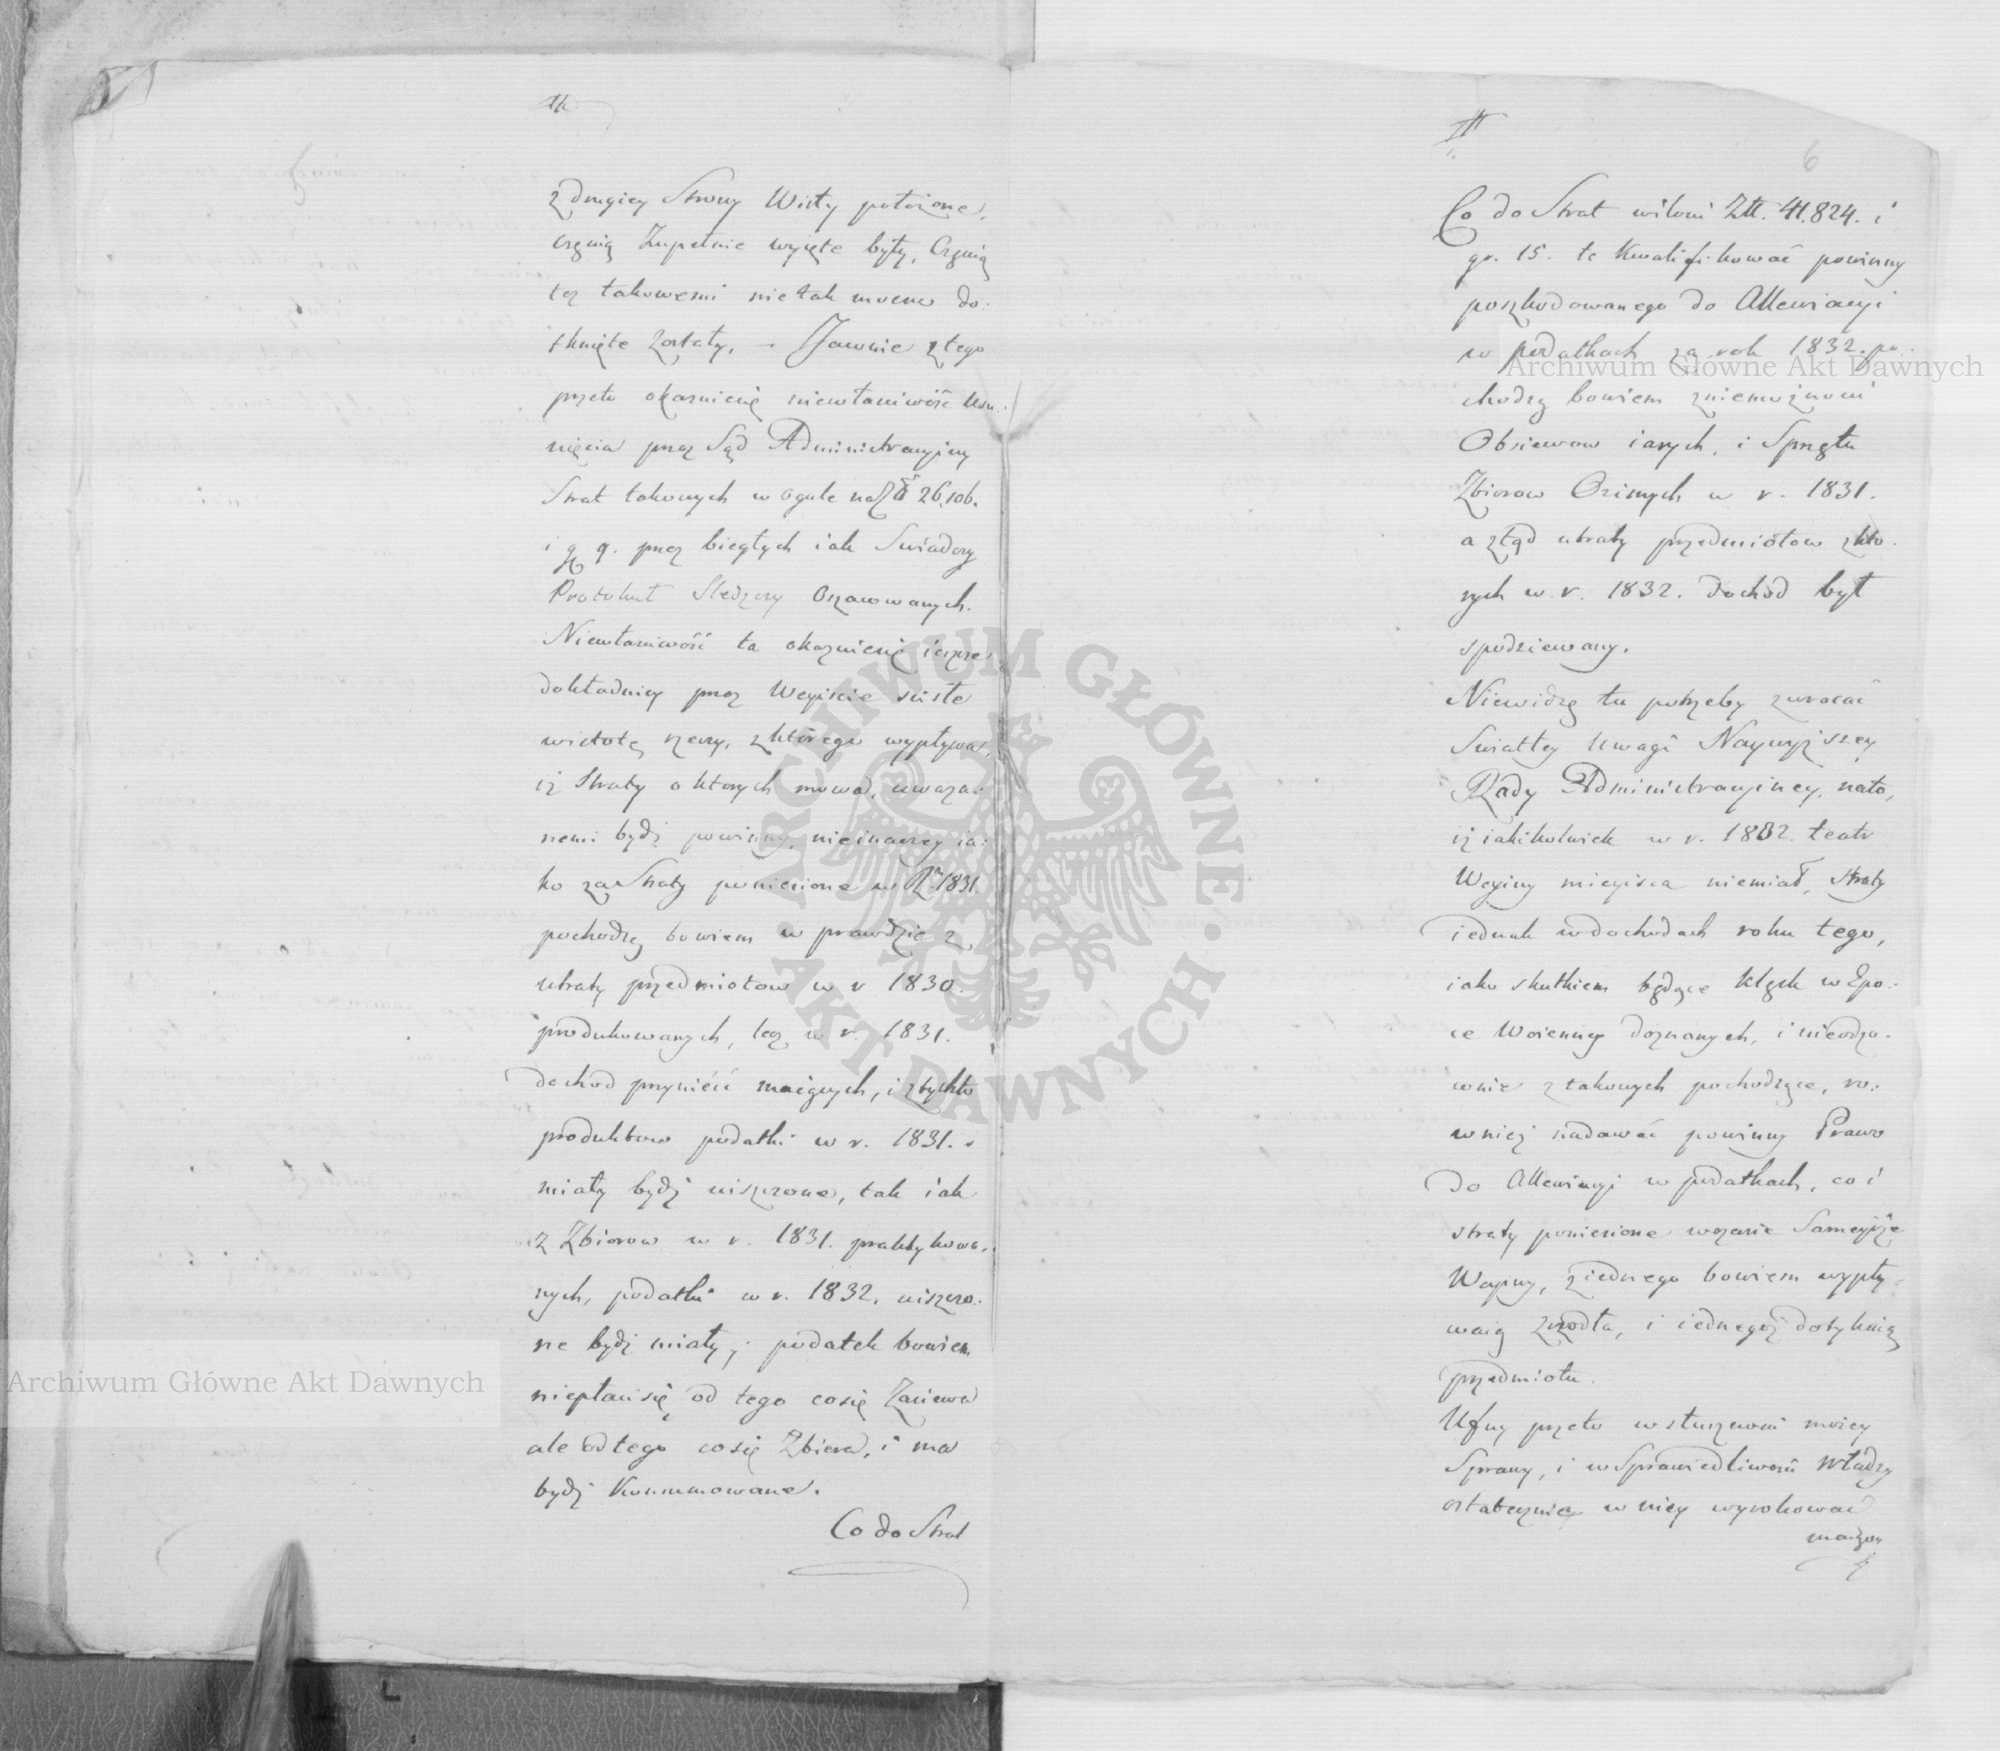 z drugiey Strony Wisły położone,
częścią Zupełnie wyięte były, Częścią
też takowemi nie tak mocno do:
tknięte zostały. – Jawnie z tego
przeto okazuiesię niewłaściwość Usu:
nięcia przez Sąd Administracyiny
Strat takowych w ogule na Zł 26,106.
i gr 9. przez biegłych iak Swiadczy
Protokuł Sledczy Oszacowanych.
Niewłasciwość ta okazuiesię ieszcze
dokładniey przez Weyscie sciśłe
w istotę rzeczy, z którego wypływa,
iż Straty o ktorych mowa, uważa:
nemi bydź powinny, nieinaczey ia:
ko za Straty poniesione w R. 1831.
pochodzą bowiem w prawdzie z
utraty przedmiotow w r 1830.
produkowanych, lecz w r. 1831.
dochod przynieść maiących, i z tychto
produktow podatki w r. 1831.
miały bydź uiszczone, tak iak
z Zbiorow w r. 1831. praktykowa:
nych, podatki w r. 1832. uiszczo:
ne bydź miały; podatek bowiem
niepłacisię od tego cosię Zasiewa
ale od tego cosię Zbiera, i ma
bydź Konsumowane.
Co do Strat
III
6
Co do Strat w ilosci Złl. 41.824. i
gr. 15. te Kwalifikować powinny
poszkodowanego do Allewiacyi
w podatkach za rok 1832. po:
chodzą bowiem z niemożnosci
Obsiewow iarych, i Sprzętu
Zbiorow Ozimych w r. 1831.
a ztąd utraty przedmiotow z kto:
rych w r. 1832. dochód był
spodziewany.
Niewidzę tu potrzeby zwracać
Swiatłey Uwagi Naywyższey
Rady Administracyiney, nato,
iż iakikolwiek w r. 1832. teatr
Woyny mieysca niemiał, straty
iednak w dochodach roku tego,
iako skutkiem będące klęsk w Epo:
ce Woienney doznanych, i nieodzo:
wnie z takowych pochodzące, ro:
wnież nadawać powinny Prawo
do Allewiacyi w podatkach, co i
straty poniesione w czasie Sameyże
Woyny, z iednego bowiem wypły:
waią zrzodła, i iednegoż dotykaią
przedmiotu.
Ufny przeto w słuszności moiey
Sprawy, i w Sprawiedliwość Władzy
ostatecznie w niey wyrokować
maiącey
Archiwum Główne Akt Dawnych
Archiwum Główne Akt Dawnych
ARCHIWUM GŁÓWNE • AKT DAWNYCH •